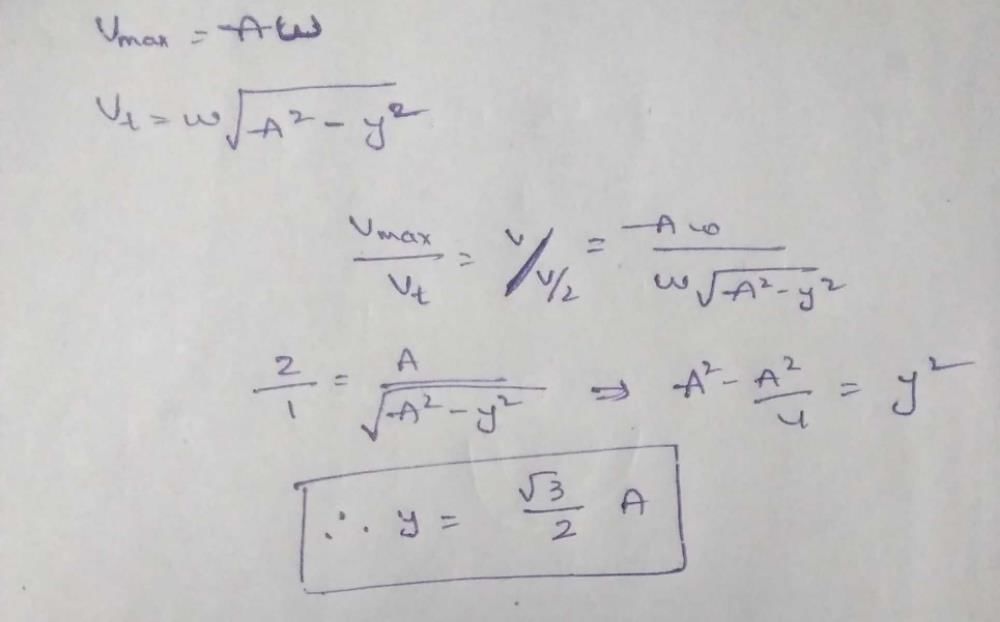 Vmax = Aω
Vt = ω√(A² - y²)
Vmax/Vt = V/(V/2) = Aω/(ω√(A² - y²))
2/1 = A/√(A² - y²) ⇒ A² - A²/4 = y²
∴ y = √3/2 A